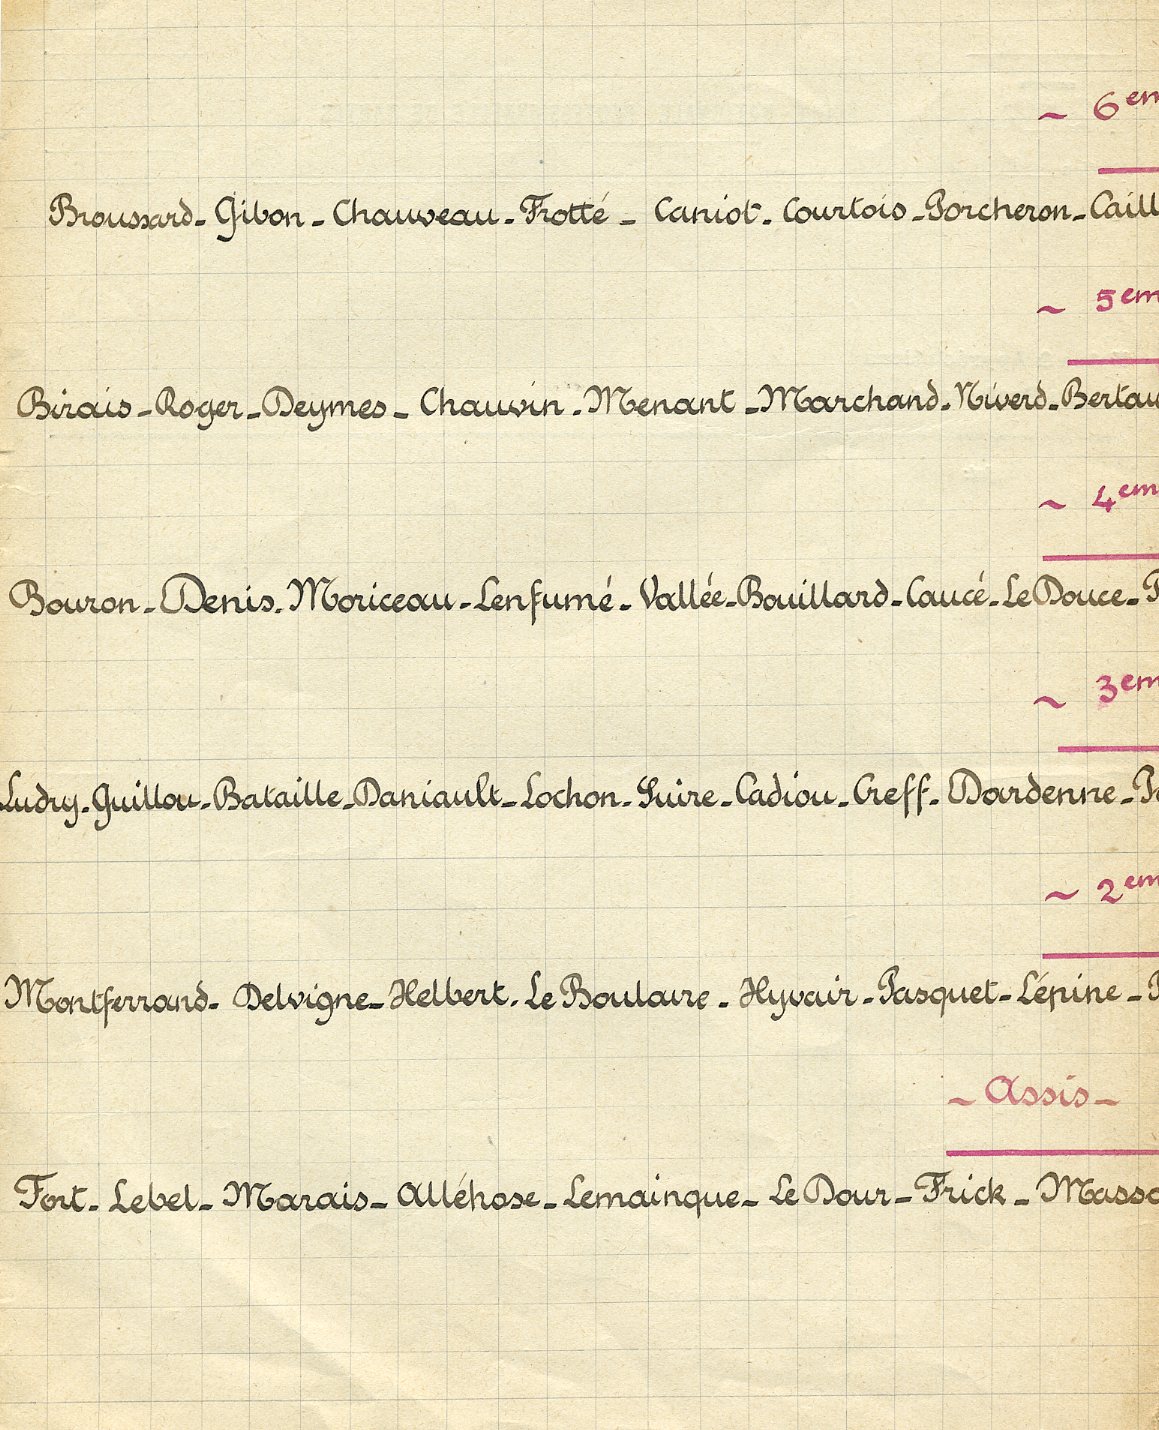 ~ 6em
Broussard - Gibon - Chauveau - Frotté - Caniot - Courtois - Porcheron - Caill
~ 5em
Birais - Roger - Deymes - Chauvin - Menant - Marchand - Niverd - Bertau
~ 4em
Bouron - Denis - Moriceau - Lenfumé - Vallée - Bouillard - Caucé - Le Douce -
~ 3em
Ludry - Guillou - Bataille - Daniault - Lochon - Suire - Cadiou - Creff - Dardenne -
~ 2em
Montferrand - Delvigne - Helbert - Le Boulaire - Hyvair - Pasquet - Lépine -
- Assis -
Fort - Lebel - Marais - Alléhose - Lemainque - Le Dour - Frick - Masso